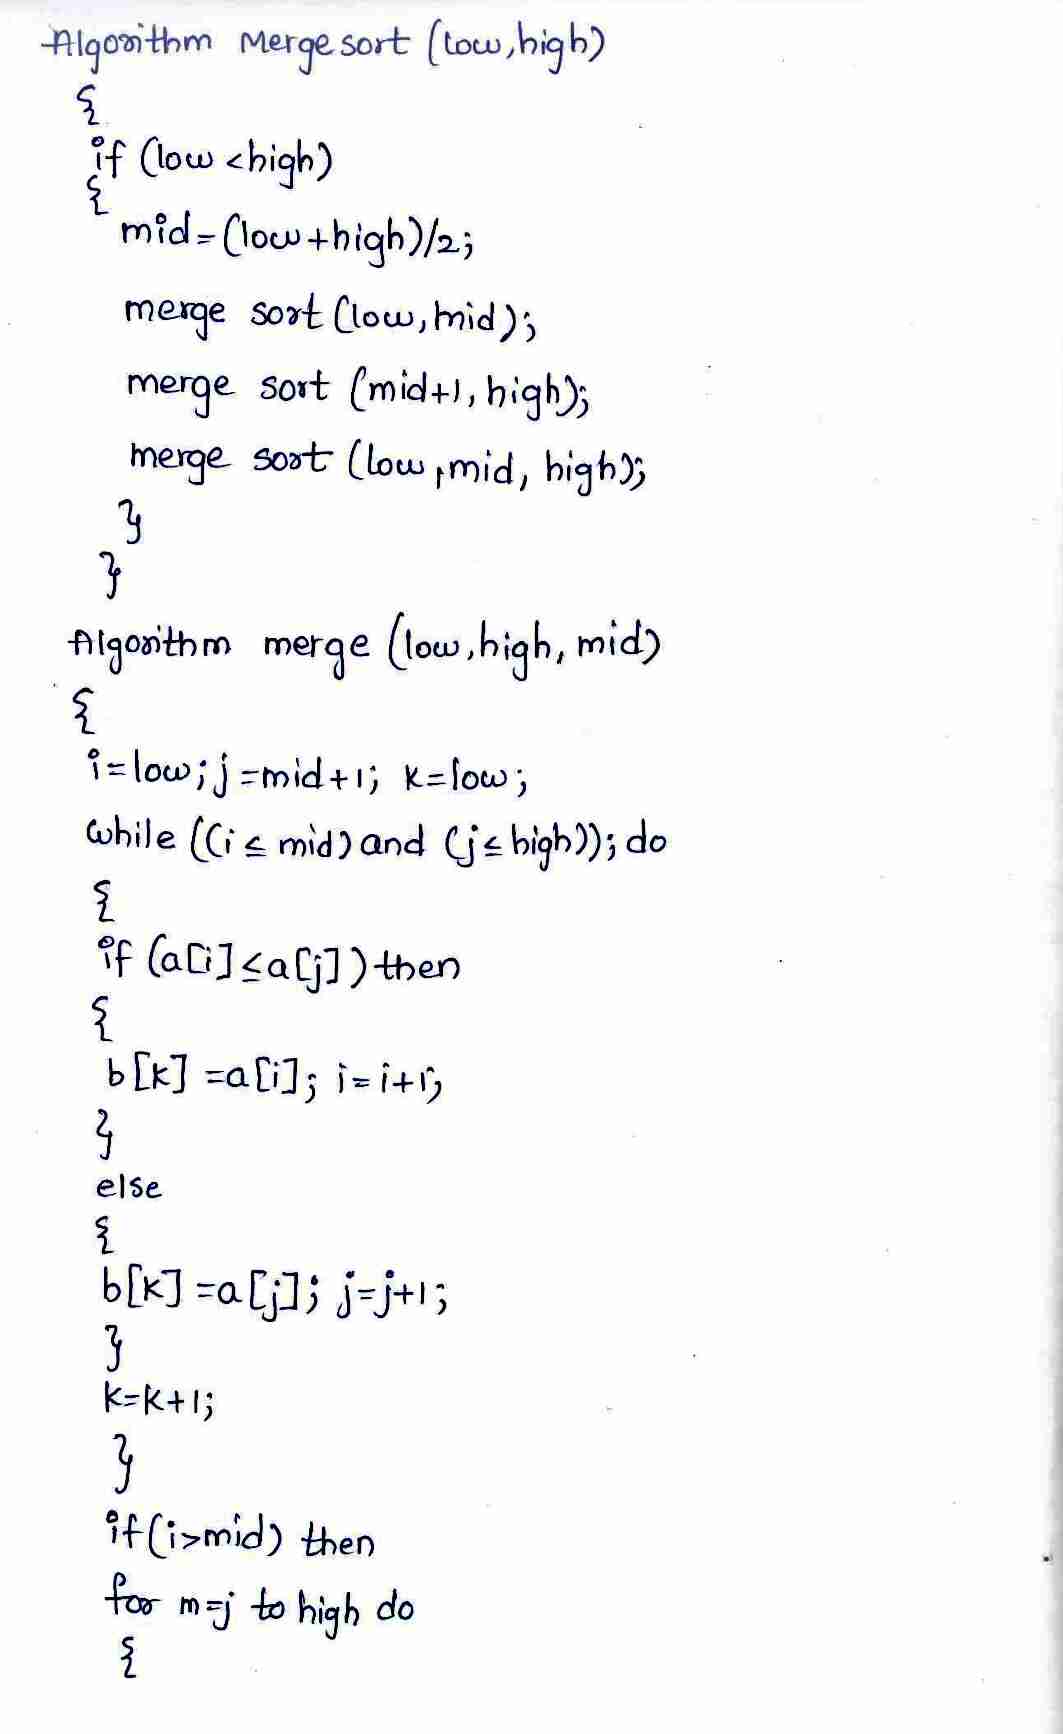 Algorithm Merge sort (low, high)
{
if (low < high)
{
mid = (low + high)/2;
merge sort (low, mid);
merge sort (mid+1, high);
merge sort (low, mid, high);
}
}
Algorithm merge (low, high, mid)
{
i = low; j = mid + 1; k = low;
while ((i ≤ mid) and (j ≤ high)); do
{
if (a[i] ≤ a[j]) then
{
b[k] = a[i]; i = i+1;
}
else
{
b[k] = a[j]; j = j+1;
}
k = k+1;
}
if (i > mid) then
for m = j to high do
{